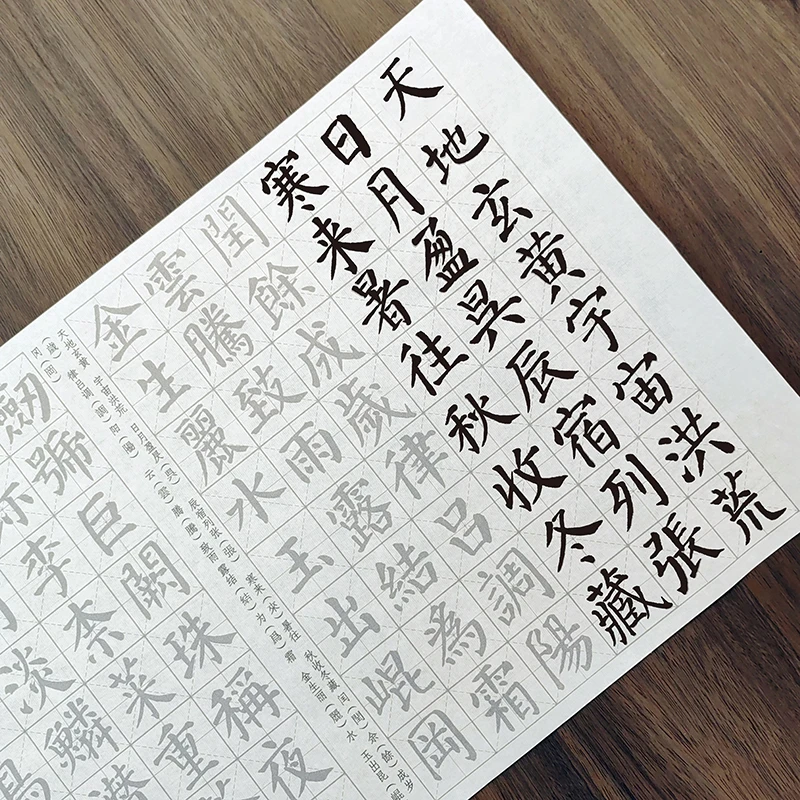 天地玄黄宇宙洪荒
日月盈昃辰宿列張
寒来暑往秋收冬藏
閏餘成歲律吕調陽
雲騰致雨露結為霜
金生麗水玉出崐岡
天地玄黄 宇宙洪荒 日月盈昃(昗) 辰宿列张(張) 寒来(來)暑往 秋收冬藏 闰(閏)余(餘)成岁
(歲) 律吕调(調)阳(陽) 云(雲)腾(騰)致雨 露结(結)为(爲)霜 金生丽(麗)水 玉出昆(崐
冈(岡)
劒號巨闕珠稱夜
李柰菜重
淡鱗潛